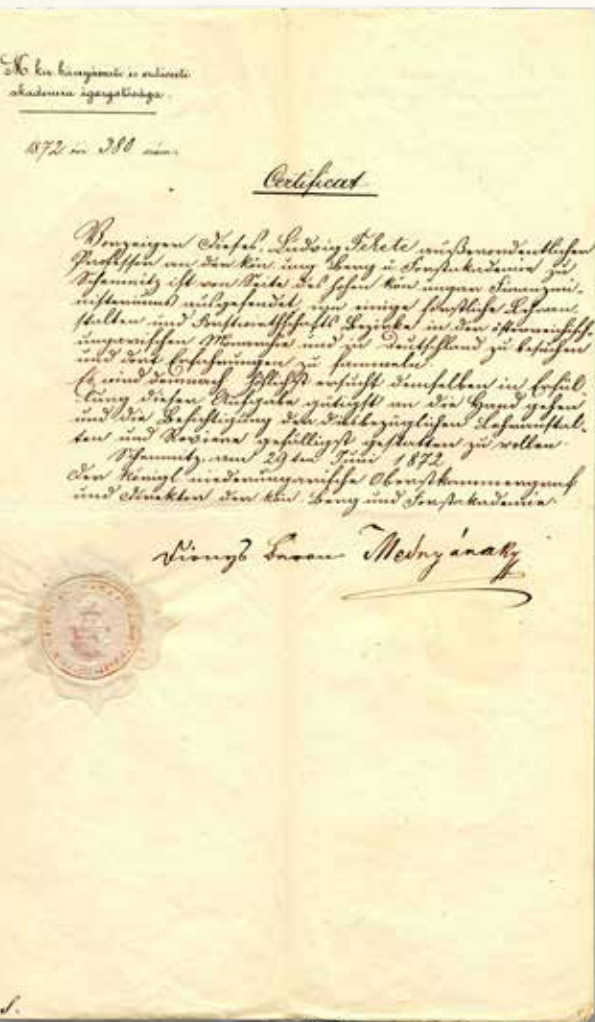 M. kir. bányászati és erdészeti
akademia igazgatósága.
1872 évi 380 szám.
Certificat
Vorzeiger dieses, Ludwig Fekete außerordentlicher
Professor an der kön. ung Berg u. Forstakademie zu
Schemnitz ist von Seite des hohen kön ungar Finanzmi-
nisteriums ausgesendet, um einige forstliche Lehran-
stalten und Forstwirthschafts Bezirke in der österreichisch-
ungarischen Monarchie und in Deutschland zu besuchen
und dort Erfahrungen zu sammeln.
Es wird demnach höflichst ersucht demselben in Erfül-
lung dieser Aufgabe gütigst an die Hand gehen
und die Besichtigung der diesbezüglichen Lehranstal-
ten und Reviere gefälligst gestatten zu wollen
Schemnitz, am 29ten Juni 1872
Der Königl niederungarische Oberstkammergraf
und Direktor der kön Berg und Forstakademie.
Dionys Baron Mednyánszky